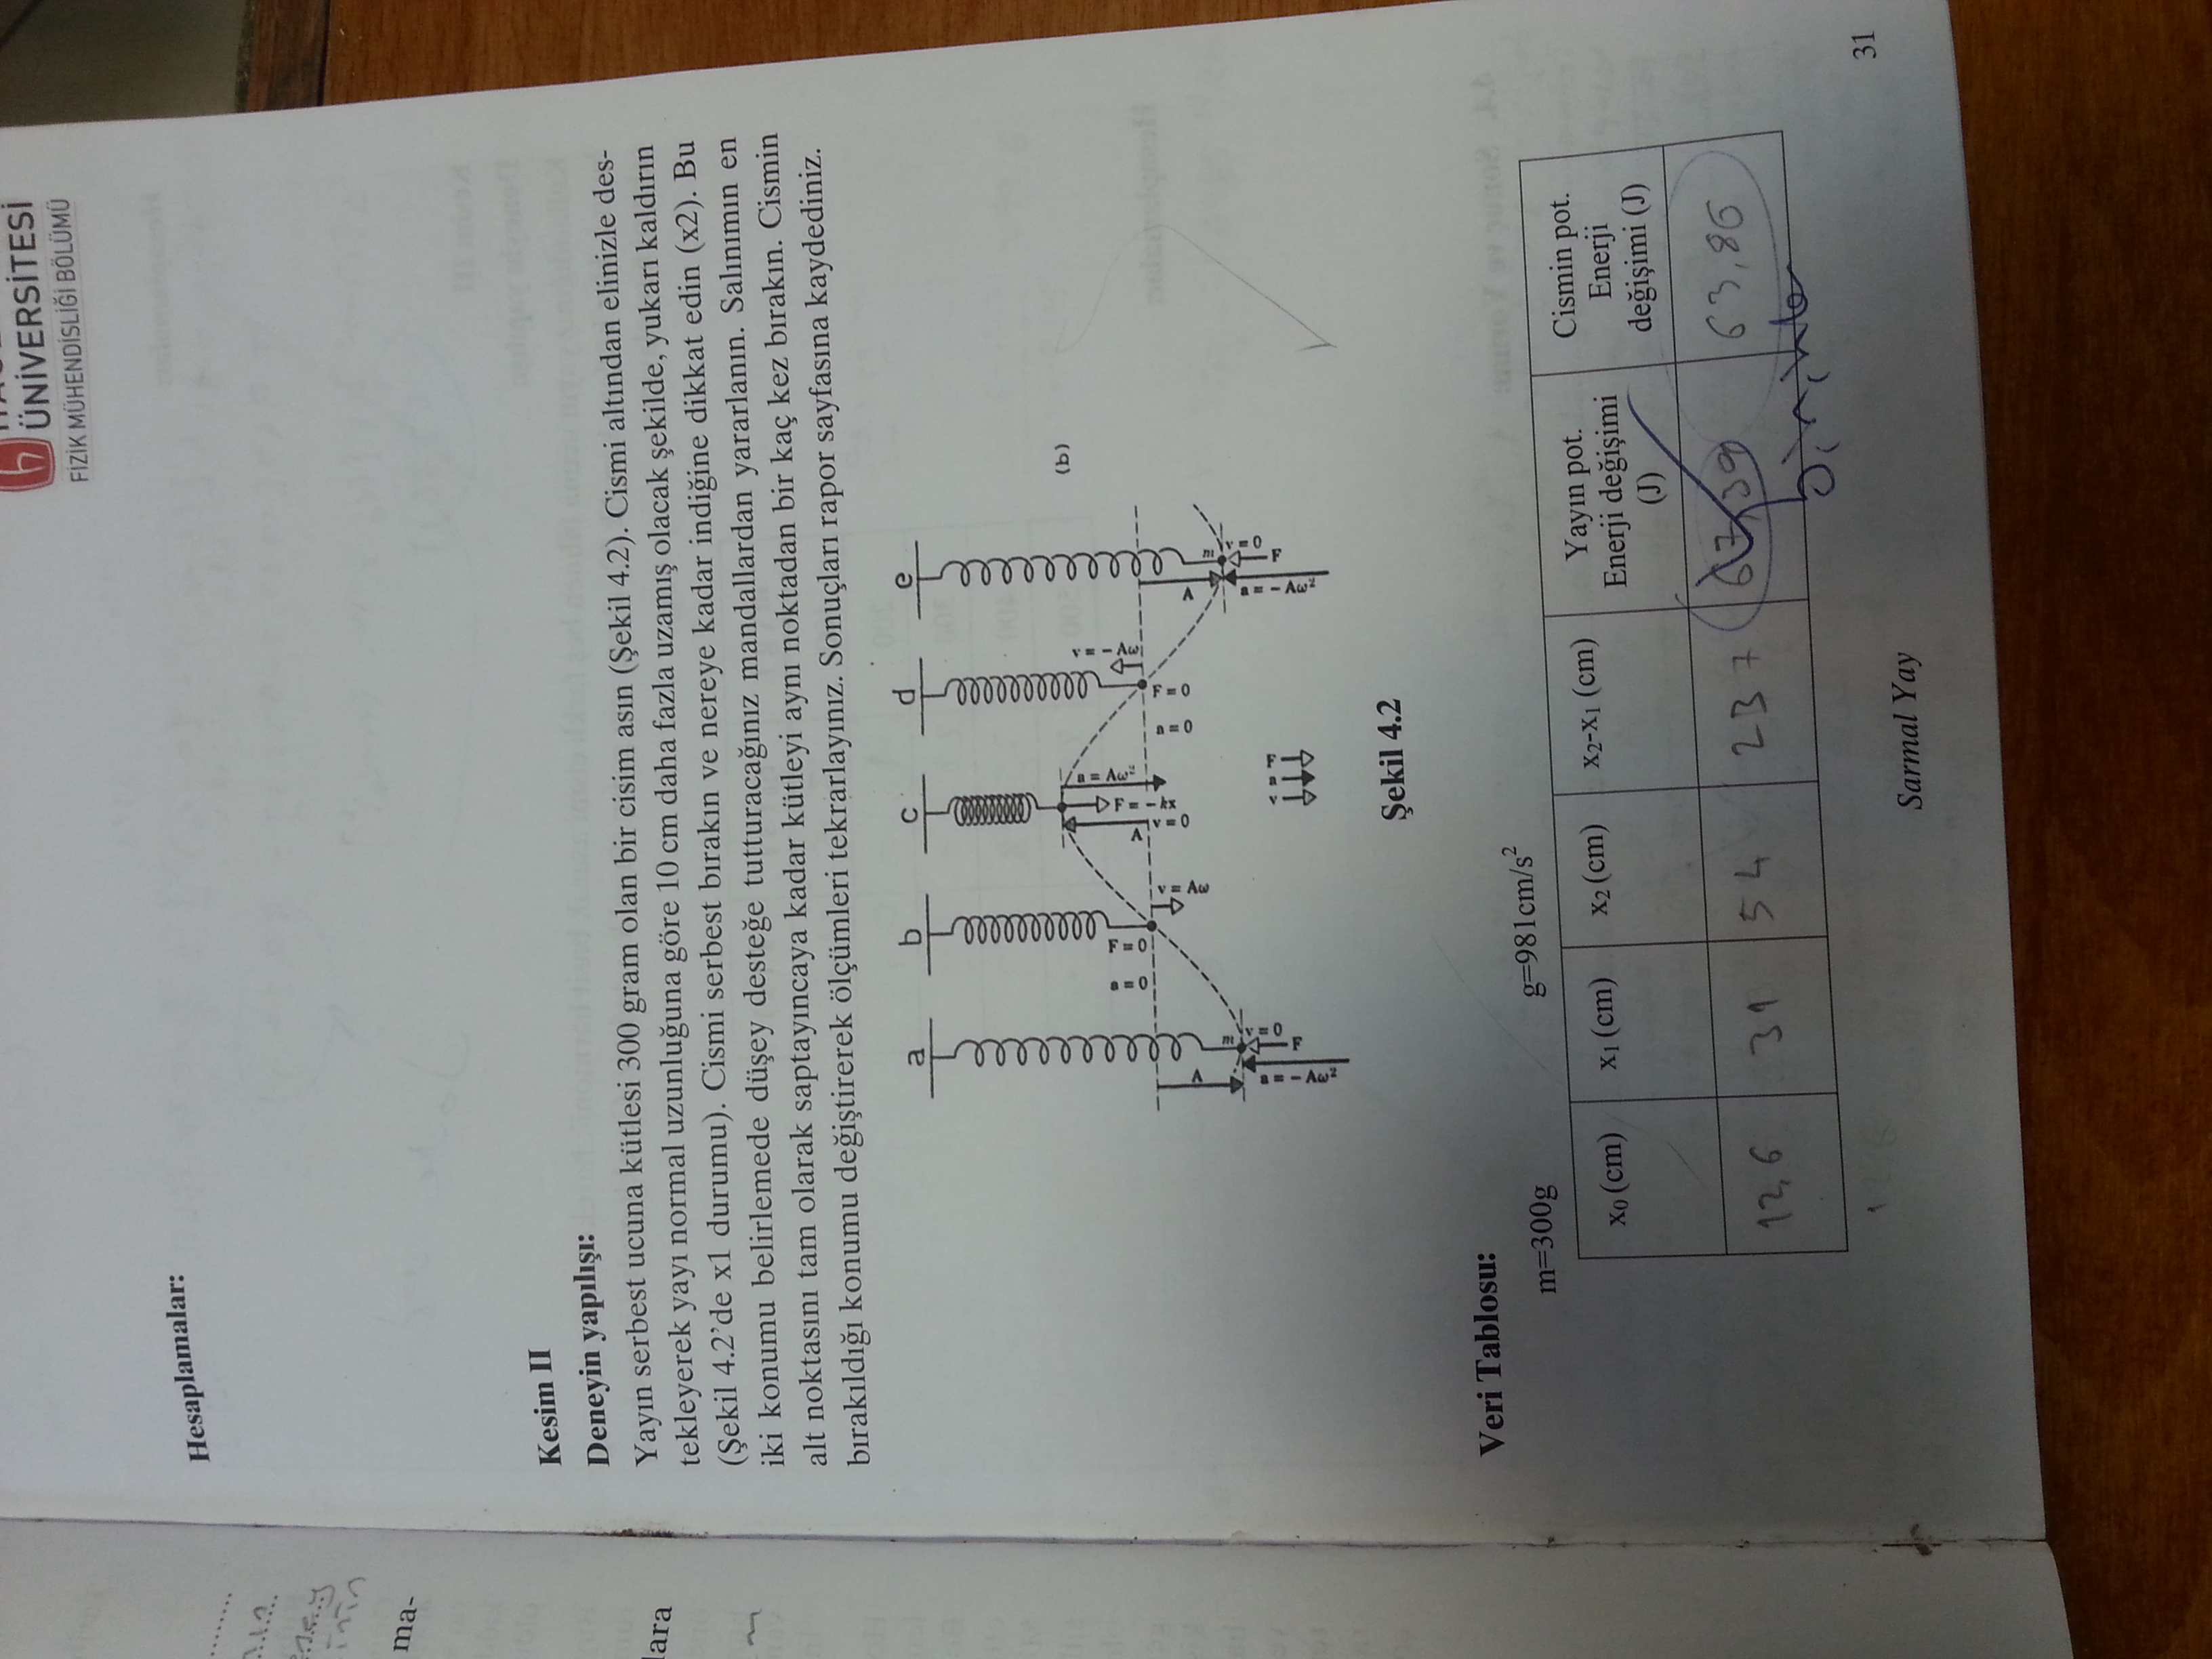 ÜNİVERSİTESİ
FİZİK MÜHENDİSLİĞİ BÖLÜMÜ
Hesaplamalar:
ma-
lara
Kesim II
Deneyin yapılışı:
Yayın serbest ucuna kütlesi 300 gram olan bir cisim asın (Şekil 4.2). Cismi altından elinizle des-
tekleyerek yayı normal uzunluğuna göre 10 cm daha fazla uzamış olacak şekilde, yukarı kaldırın
(Şekil 4.2'de x1 durumu). Cismi serbest bırakın ve nereye kadar indiğine dikkat edin (x2). Bu
iki konumu belirlemede düşey desteğe tutturacağınız mandallardan yararlanın. Salınımın en
alt noktasını tam olarak saptayıncaya kadar kütleyi aynı noktadan bir kaç kez bırakın. Cismin
bırakıldığı konumu değiştirerek ölçümleri tekrarlayınız. Sonuçları rapor sayfasına kaydediniz.
a b c d e
(b)
a = 0
F = 0
v = Aω
A
v = 0
F = – kx
a = Aω²
a = 0
F = 0
v = – Aω
A
m
v = 0
F
a = – Aω²
A
m
v = 0
F
a = – Aω²
v a F
Şekil 4.2
Veri Tablosu:
m=300g g=981cm/s²
x₀ (cm) x₁ (cm) x₂ (cm) x₂-x₁ (cm) Yayın pot. Enerji değişimi (J) Cismin pot. Enerji değişimi (J)
12,6 31 54 23 7 67,39 63,86
12 6
Sarmal Yay
31